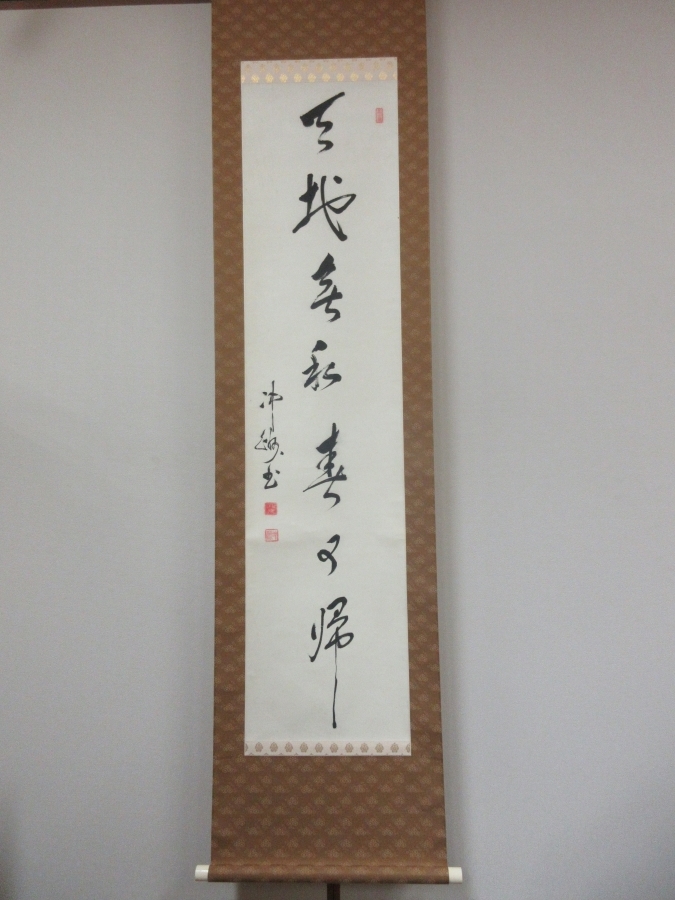 天地無私春又帰